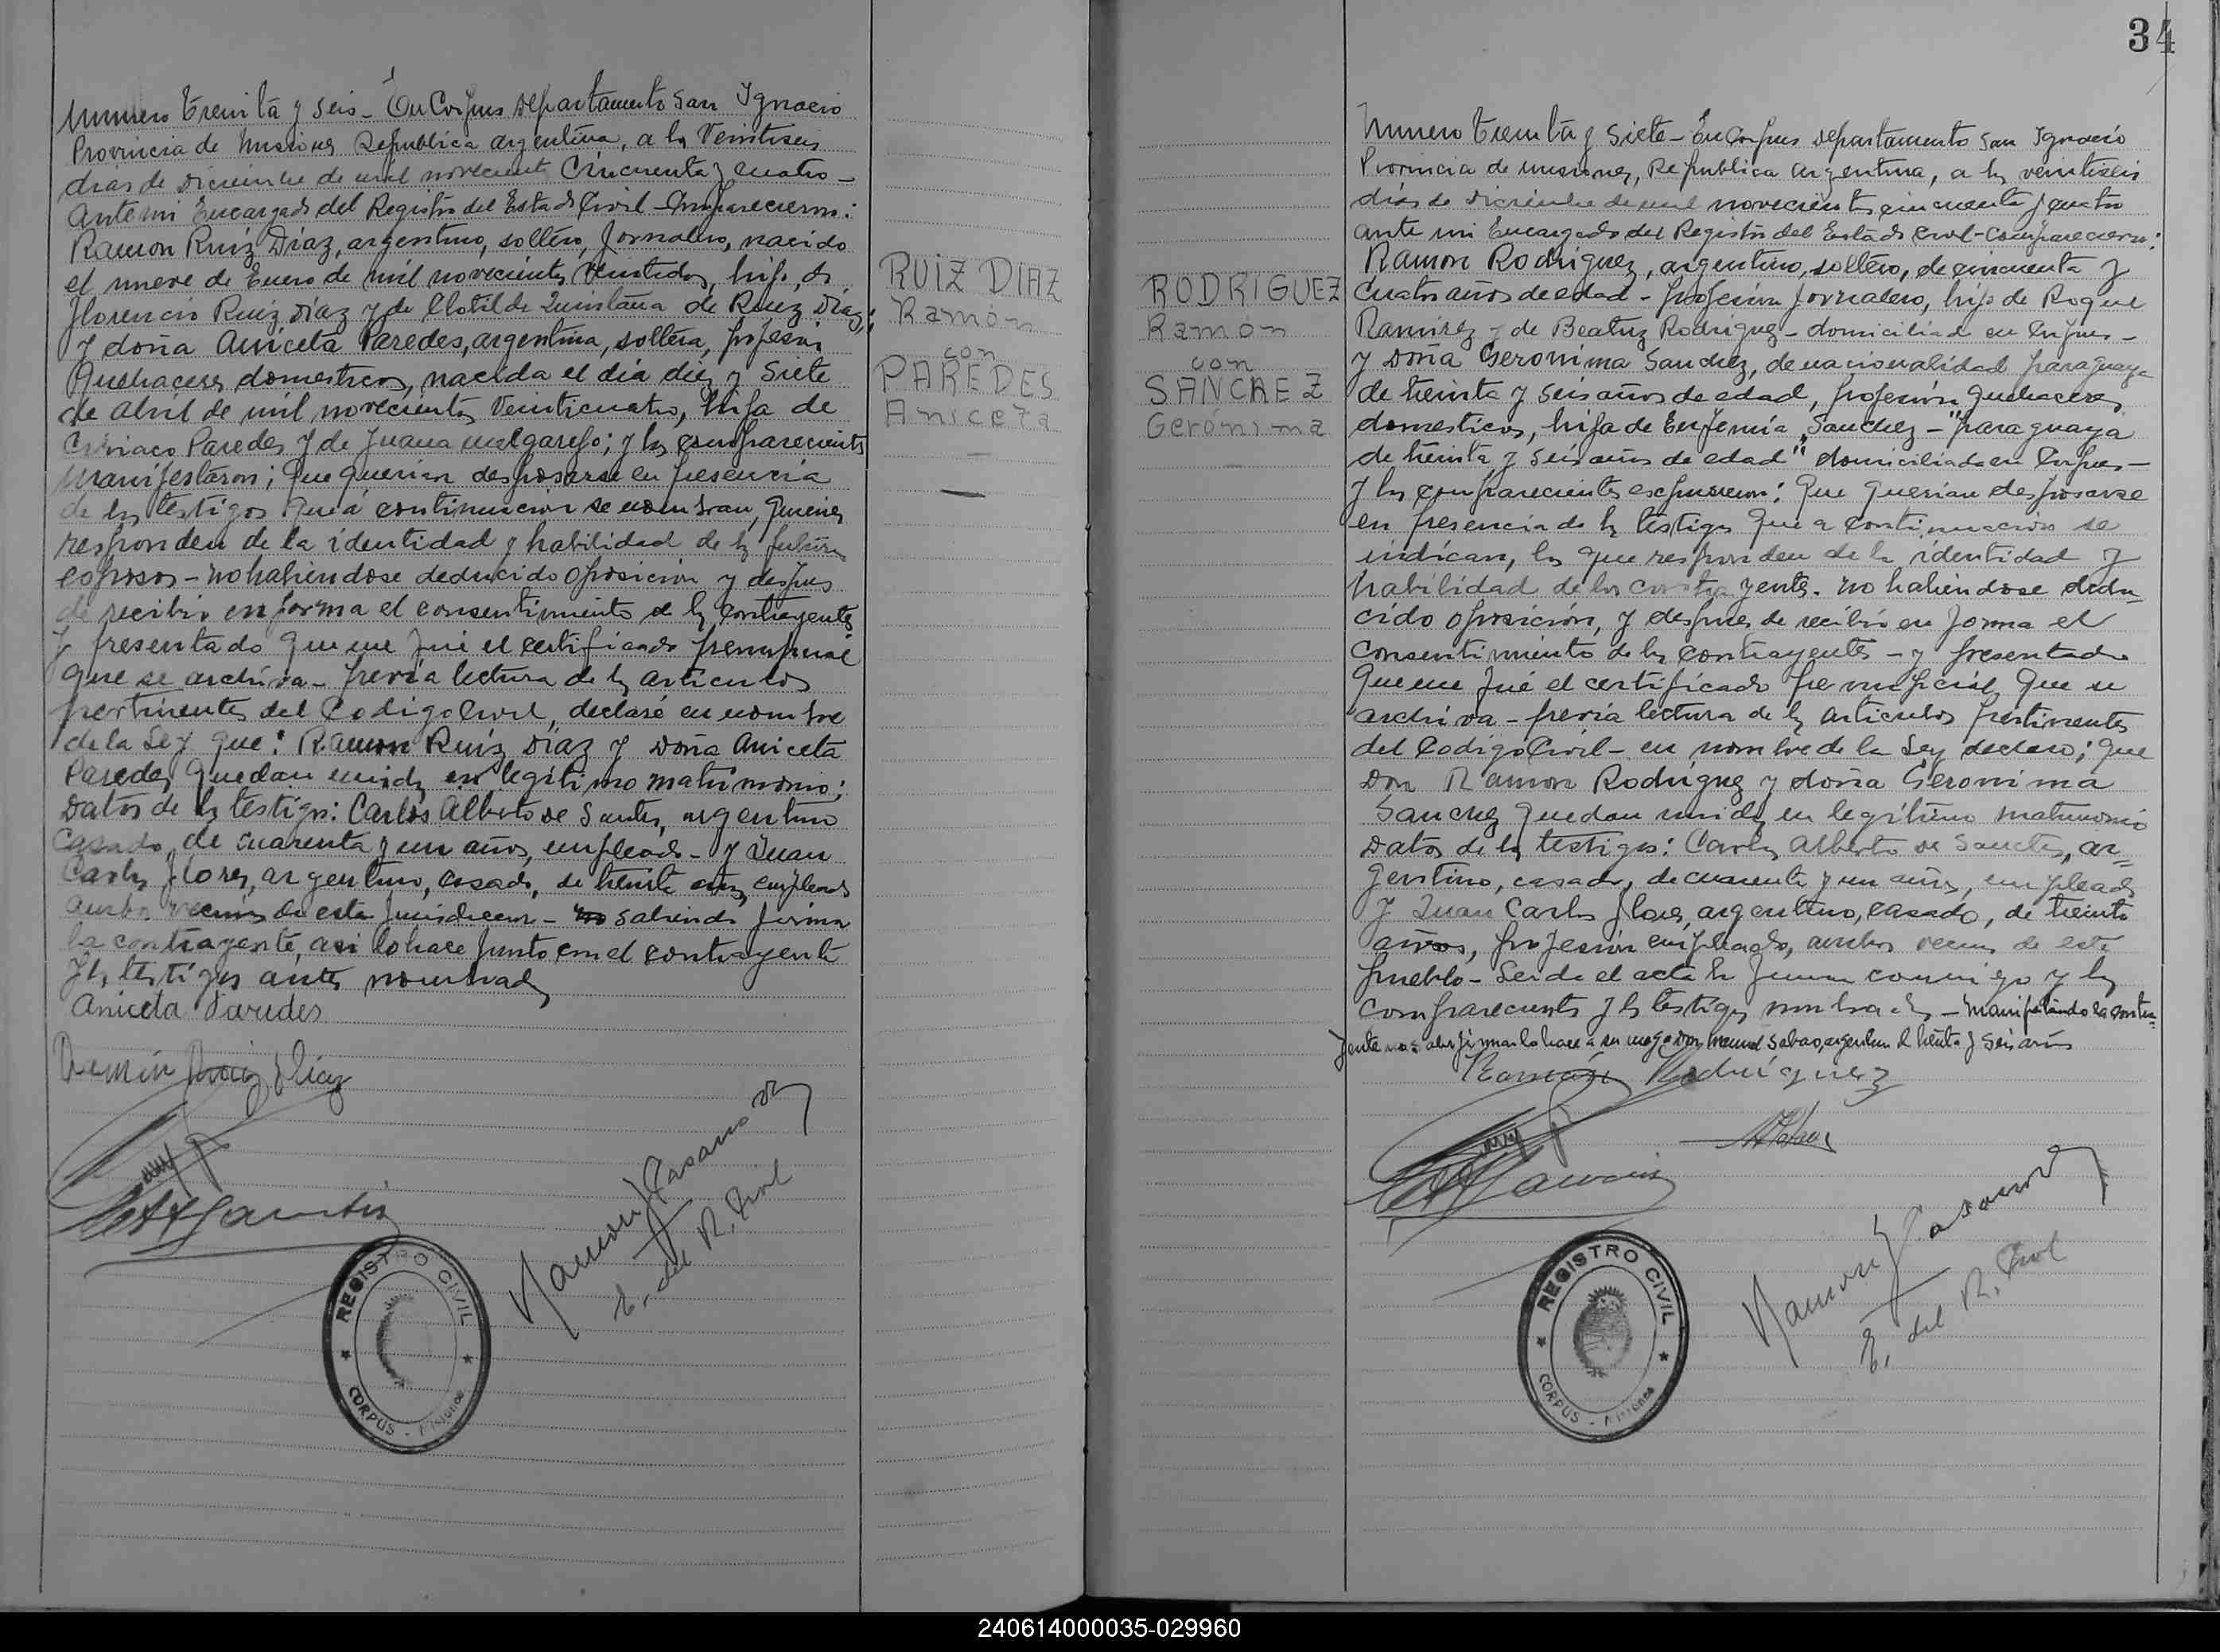 Numero treinta y seis - En Corpus Departamento San Ignacio
Provincia de Misiones Republica argentina, a los Veintiseis
dias de Diciembre de mil novecientos Cincuenta y cuatro -
Ante mi Encargado del Registro del Estado Civil - Comparecieron:
Ramon Ruiz Diaz, argentino, soltero, Jornalero, nacido
el nueve de Enero de mil novecientos veintidos, hijo de
Florencio Ruiz Diaz y de Clotilde Quintana de Ruiz Diaz;
Y doña Aniceta Paredes, argentina, soltera, profesion
Quehaceres domesticos, nacida el dia diez y Siete
de abril de mil novecientos Veinticuatro, hija de
Ciriaco Paredes y de Juana Melgarejo; y los comparecientes
Manifestaron; Que querian desposarse en presencia
de los testigos Que a continuacion se nombran, Quienes
responden de la identidad y habilidad de los futuros
esposos - no habiendose deducido oposicion y despues
de recibir en forma el consentimiento de los contrayentes
Y presentado que me fue el certificado prenupcial
que se archiva - previa lectura de los articulos
pertinentes del Codigo Civil, declaré en nombre
de la Ley que: Ramon Ruiz Diaz y Doña Aniceta
Paredes Quedan unidos en legitimo matrimonio;
Datos de los testigos: Carlos Alberto de Santis, argentino
Casado, de cuarenta y un años, empleado - Y Juan
Carlos Flores, argentino, casado, de treinta años, empleado
ambos vecinos de esta Jurisdiccion - sabiendo firmar
la contrayente, asi lo hace junto con el contrayente
Y los testigos antes nombrados
Aniceta Paredes
Ramón Ruiz Diaz
Ramon Casanova
E. del R. Civil
REGISTRO CIVIL
CORPUS - Misiones
RUIZ DIAZ
Ramón
con
PAREDES
Aniceta
34
RODRIGUEZ
Ramón
con
SANCHEZ
Gerónima
Numero treinta y siete - En Corpus Departamento San Ignacio
Provincia de Misiones, Republica argentina, a los veintiseis
dias de Diciembre de mil novecientos cincuenta y cuatro
ante mi Encargado del Registro del Estado Civil - Comparecieron:
Ramon Rodriguez, argentino, soltero, de cincuenta y
cuatro años de edad - profesion Jornalero, hijo de Roque
Ramirez y de Beatriz Rodriguez - domiciliado en Corpus -
Y Doña Geronima Sanchez, de nacionalidad paraguaya
de treinta y seis años de edad, profesión Quehaceres
domesticos, hija de Eufemia Sanchez - "paraguaya
de treinta y seis años de edad" domiciliada en Corpus -
Y los comparecientes expusieron: Que querian desposarse
en presencia de los testigos Que a continuacion se
indican, los que responden de la identidad y
habilidad de los contrayentes. no habiendose dedu-
cido oposición, y despues de recibir en forma el
consentimiento de los contrayentes - y presentado
Que me fué el certificado prenupcial Que se
archiva - previa lectura de los articulos pertinentes
del Codigo Civil - en nombre de la Ley declaro; Que
Don Ramon Rodriguez y doña Geronima
Sanchez Quedan unidos en legitimo matrimonio
Datos de los testigos: Carlos Alberto de Santis, ar-
gentino, casado, de cuarenta y un años, empleado
Y Juan Carlos Flores, argentino, casado, de treinta
años, profesión empleado, ambos vecinos de este
pueblo - Leida el acta la firman conmigo y los
comparecientes y los testigos nombrados - Manifestando la contra-
yente no saber firmar lo hace a su ruego don Manuel Sabao, argentino de treinta y seis años
Ramón Rodriguez
Ramon Casanova
E. del R. Civil
REGISTRO CIVIL
CORPUS - Misiones
240614000035-029960